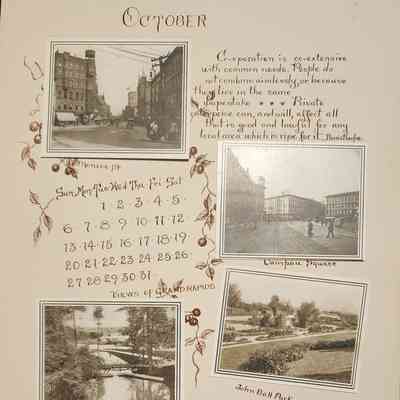 OCTOBER
Co-operation is co-extensive
with common needs. People do
not condom aimlessly, or because
they live in the same
Private
enterprise can, and will, affect all
that is good and lawful for any
local area which is ripe for it.
Monroe St.
Sun. Mon. Tue. Wed. Thu. Fri. Sat.
1 2 3 4 5
6 7 8 9 10 11 12
13 14 15 16 17 18 19
20 21 22 23 24 25 26
27 28 29 30 31
Campau Square
VIEWS OF GRAND RAPIDS
John Ball Park